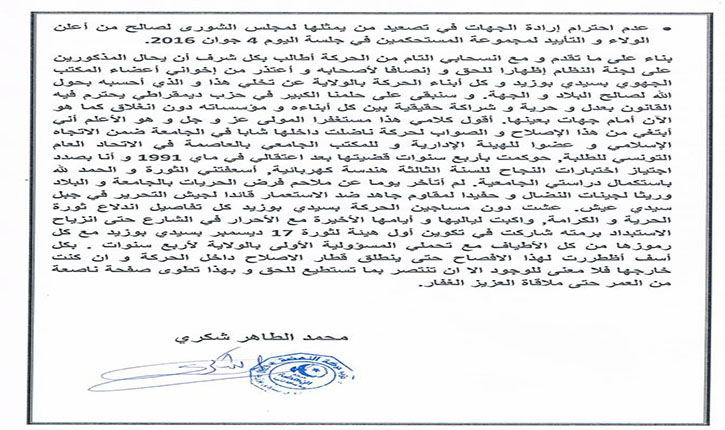 • عدم احترام إرادة الجهات في تصعيد من يمثلها لمجلس الشورى لصالح من أعلن
الولاء و التأييد لمجموعة المستحكمين في جلسة اليوم 4 جوان 2016.
بناء على ما تقدم و مع انسحابي التام من الحركة أطالب بكل شرف أن يحال المذكورين
على لجنة النظام إظهارا للحق و إنصافا لأصحابه و أعتذر من إخواني أعضاء المكتب
الجهوي بسيدي بوزيد و كل أبناء الحركة بالولاية عن تخلي هذا و الذي أحسبه بحول
الله لصالح البلاد و الجهة. و سنبقى على حلمنا الكبير في حزب ديمقراطي يحترم فيه
القانون بعدل و حرية و شراكة حقيقية بين كل أبناءه و مؤسساته دون انغلاق كما هو
الآن أمام جهات بعينها. أقول كلامي هذا مستغفرا المولى عز و جل و هو الأعلم أني
أبتغي من هذا الإصلاح و الصواب لحركة ناضلت داخلها شابا في الجامعة ضمن الاتجاه
الإسلامي و عضوا للهيئة الإدارية و للمكتب الجامعي بالعاصمة في الاتحاد العام
التونسي للطلبة, حوكمت بأربع سنوات قضيتها بعد اعتقالي في ماي 1991 و أنا بصدد
اجتياز اختبارات النجاح للسنة الثالثة هندسة كهربائية, أسعفتني الثورة و الحمد لله
باستكمال دراستي الجامعية. لم أتأخر يوما عن ملاحم فرض الحريات بالجامعة و البلاد
وريثا لجينات النضال و حفيدا لمقاوم جاهد ضد الاستعمار قائدا لجيش التحرير في جبل
سيدي عيش. عشت دون مساجين الحركة بسيدي بوزيد كل تفاصيل اندلاع ثورة
الحرية و الكرامة, واكبت لياليها و أيامها الأخيرة مع الأحرار في الشارع حتى انزياح
الاستبداد برمته شاركت في تكوين أول هيئة لثورة 17 ديسمبر بسيدي بوزيد مع كل
رموزها من كل الأطياف مع تحملي المسؤولية الأولى بالولاية لأربع سنوات . بكل
أسف أظطررت لهذا الافصاح حتى ينطلق قطار الاصلاح داخل الحركة و ان كنت
خارجها فلا معنى للوجود الا ان تنتصر بما تستطيع للحق و بهذا تطوى صفحة ناصعة
من العمر حتى ملاقاة العزيز الغفار.
محمد الطاهر شكري